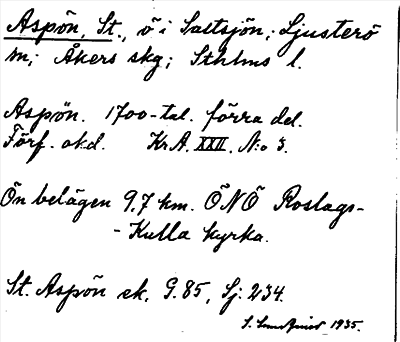 Aspön, St., ö i Saltsjön; Ljusterö
sn; Åkers skg; Sthlms l.
Aspön. 1700-tal. förra del.
Förf. okd. Kr.A. XXII. N:o 3.
Ön belägen 9,7 km. ÖNÖ Roslags-
-Kulla kyrka.
St. Aspön ek. G. 85, Sj: 234.
S. 1935.